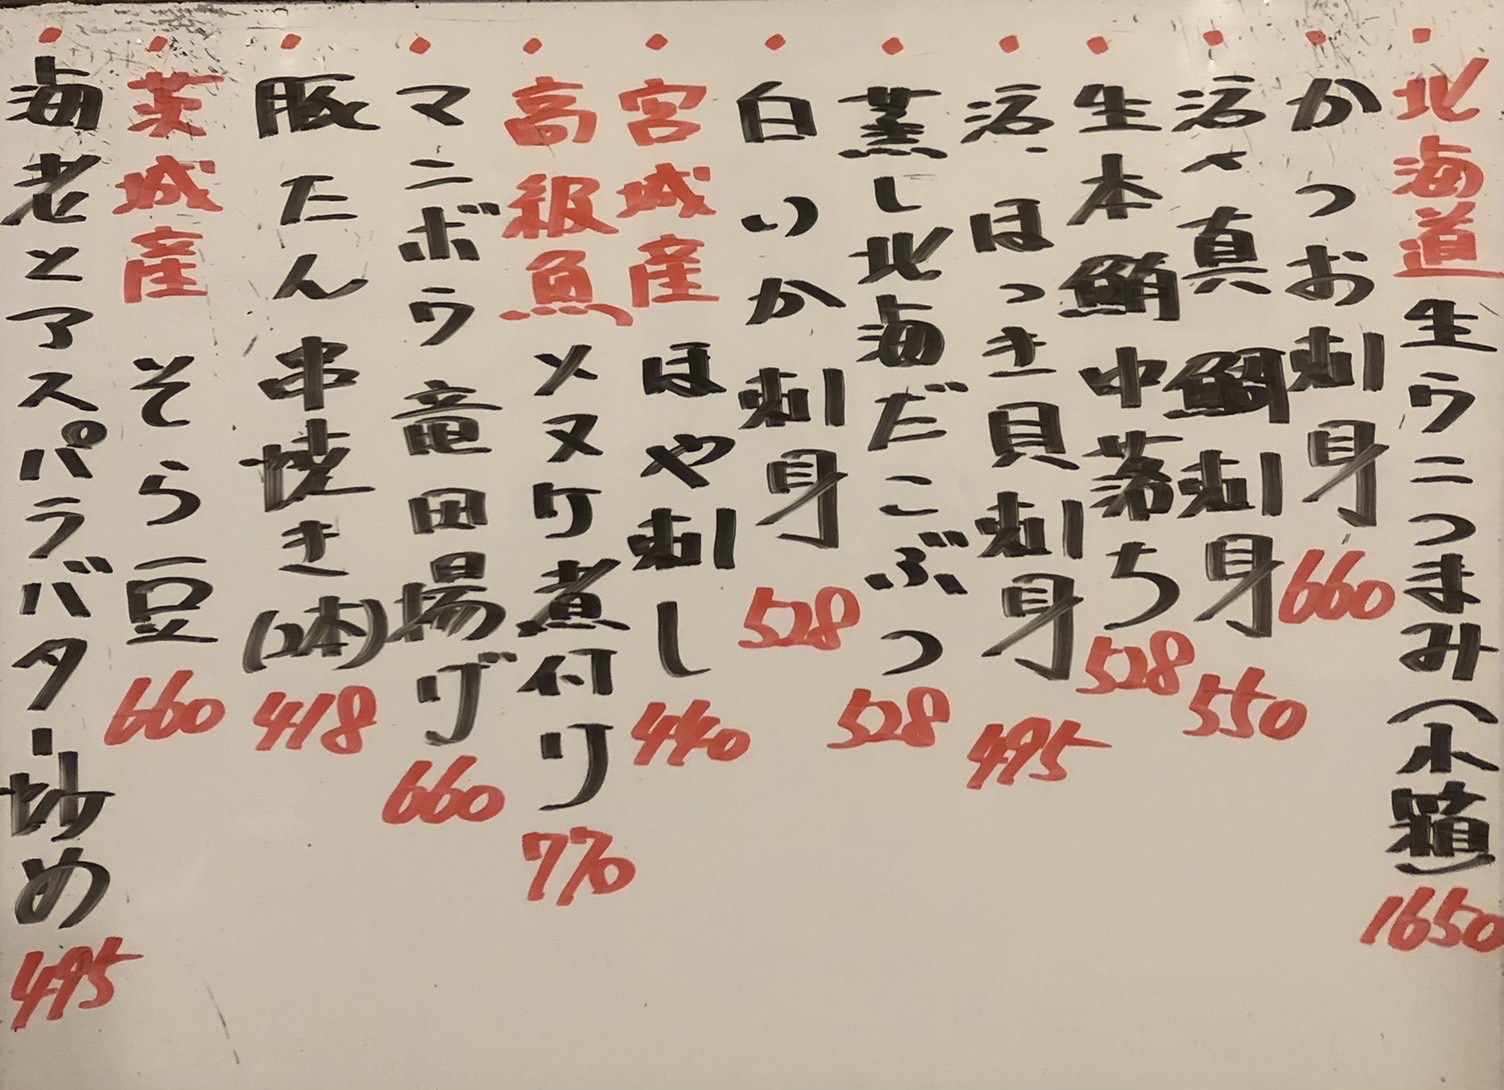 ・北海道生ウニつまみ(小箱)1650
・かつお刺身660
・活〆真鯛刺身550
・生本鮪中落ち528
・活ほっき貝刺身495
・蒸し北海だこぶつ528
・白いか刺身528
・宮城産ほや刺し440
・高級魚メヌケ煮付け770
・マンボウ竜田揚げ660
・豚たん串焼き(2本)418
・茨城産そら豆660
・海老とアスパラバター炒め495